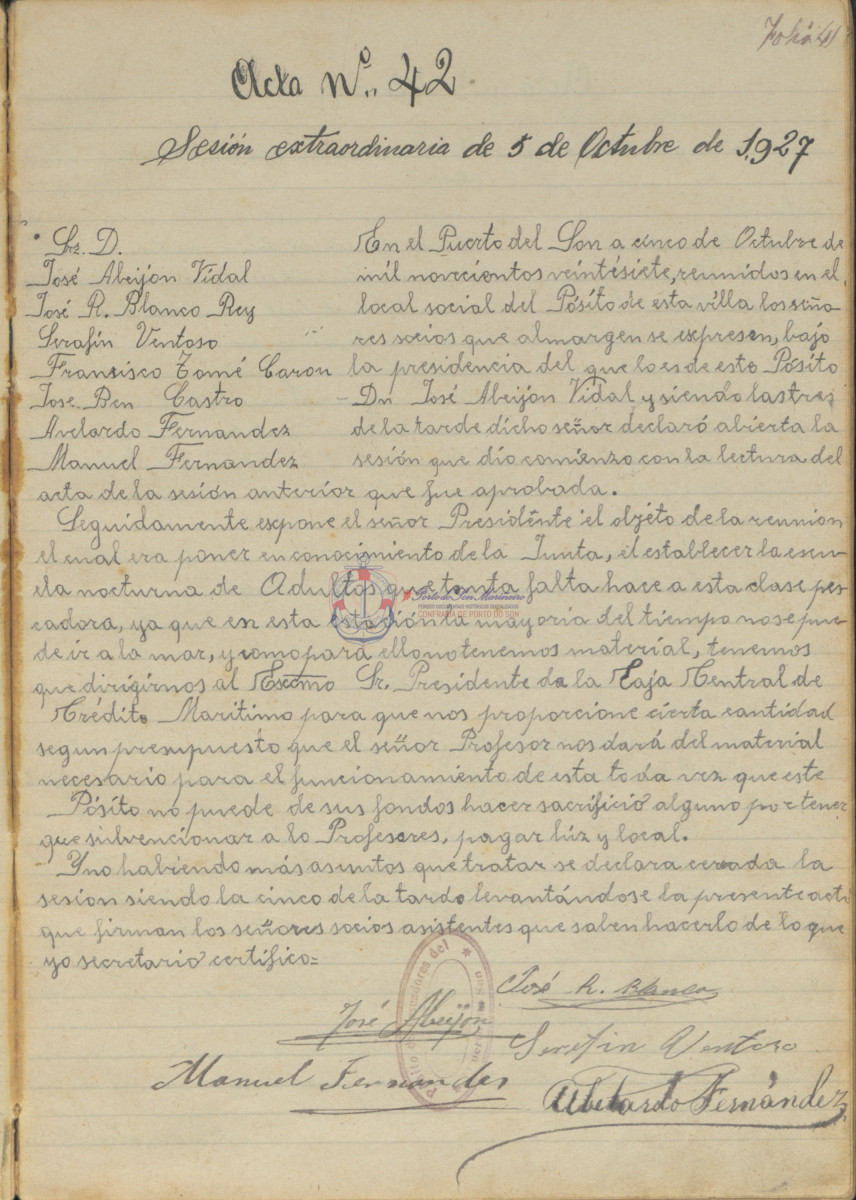 Folio 41
Acta Nº. 42
Sesión extraordinaria de 5 de Octubre de 1.927
Srz. D.
José Abeijón Vidal
José R. Blanco Rey
Serafín Ventoso
Francisco Tomé Caron
Jose Ben Castro
Avelardo Fernandez
Manuel Fernandez
En el Puerto del Son a cinco de Octubre de
mil novecientos veintésiete, reunidos en el
local social del Pósito de esta villa los seño-
res socios que al margen se expresen, bajo
la presidencia del que lo es de este Pósito
Dn José Abeijón Vidal y siendo las tres
de la tarde dicho señor declaró abierta la
sesión que dío comienzo con la lectura del
acta de la sesión anterior que fue aprobada.
Seguidamente expone el señor Presidente el objeto de la reunion
el cual era poner en conocimiento de la Junta, el establecer la escu-
ela nocturna de Adultos que tanta falta hace a esta clase pes-
cadora, ya que en esta estación la mayoria del tiempo no se pue-
de ir a la mar, y como para ello no tenemos material, tenemos
que dirigirnos al Excmo Sr. Presidente de la Caja Central de
Crédito Maritimo para que nos proporcione cierta cantidad
segun presupuesto que el señor Profesor nos dará del material
necesario para el funcionamiento de esta toda vez que este
Pósito no puede de sus fondos hacer sacrificio alguno por tener
que subvencionar a lo Profesores, pagar luz y local.
Y no habiendo más asuntos que tratar se declara cerada la
sesion siendo la cinco de la tarde levantándose la presente acta
que firman los señores socios asistentes que saben hacerlo de lo que
yo secretario certifico=
José R. Blanco
José Abeijón
Serafin Ventoso
Manuel Fernandez
Abelardo Fernández
Porto do Son Mariñeiro
FONDO DOCUMENTAL HISTÓRICO DIGITALIZADO
CONFRARÍA DE PORTO DO SON